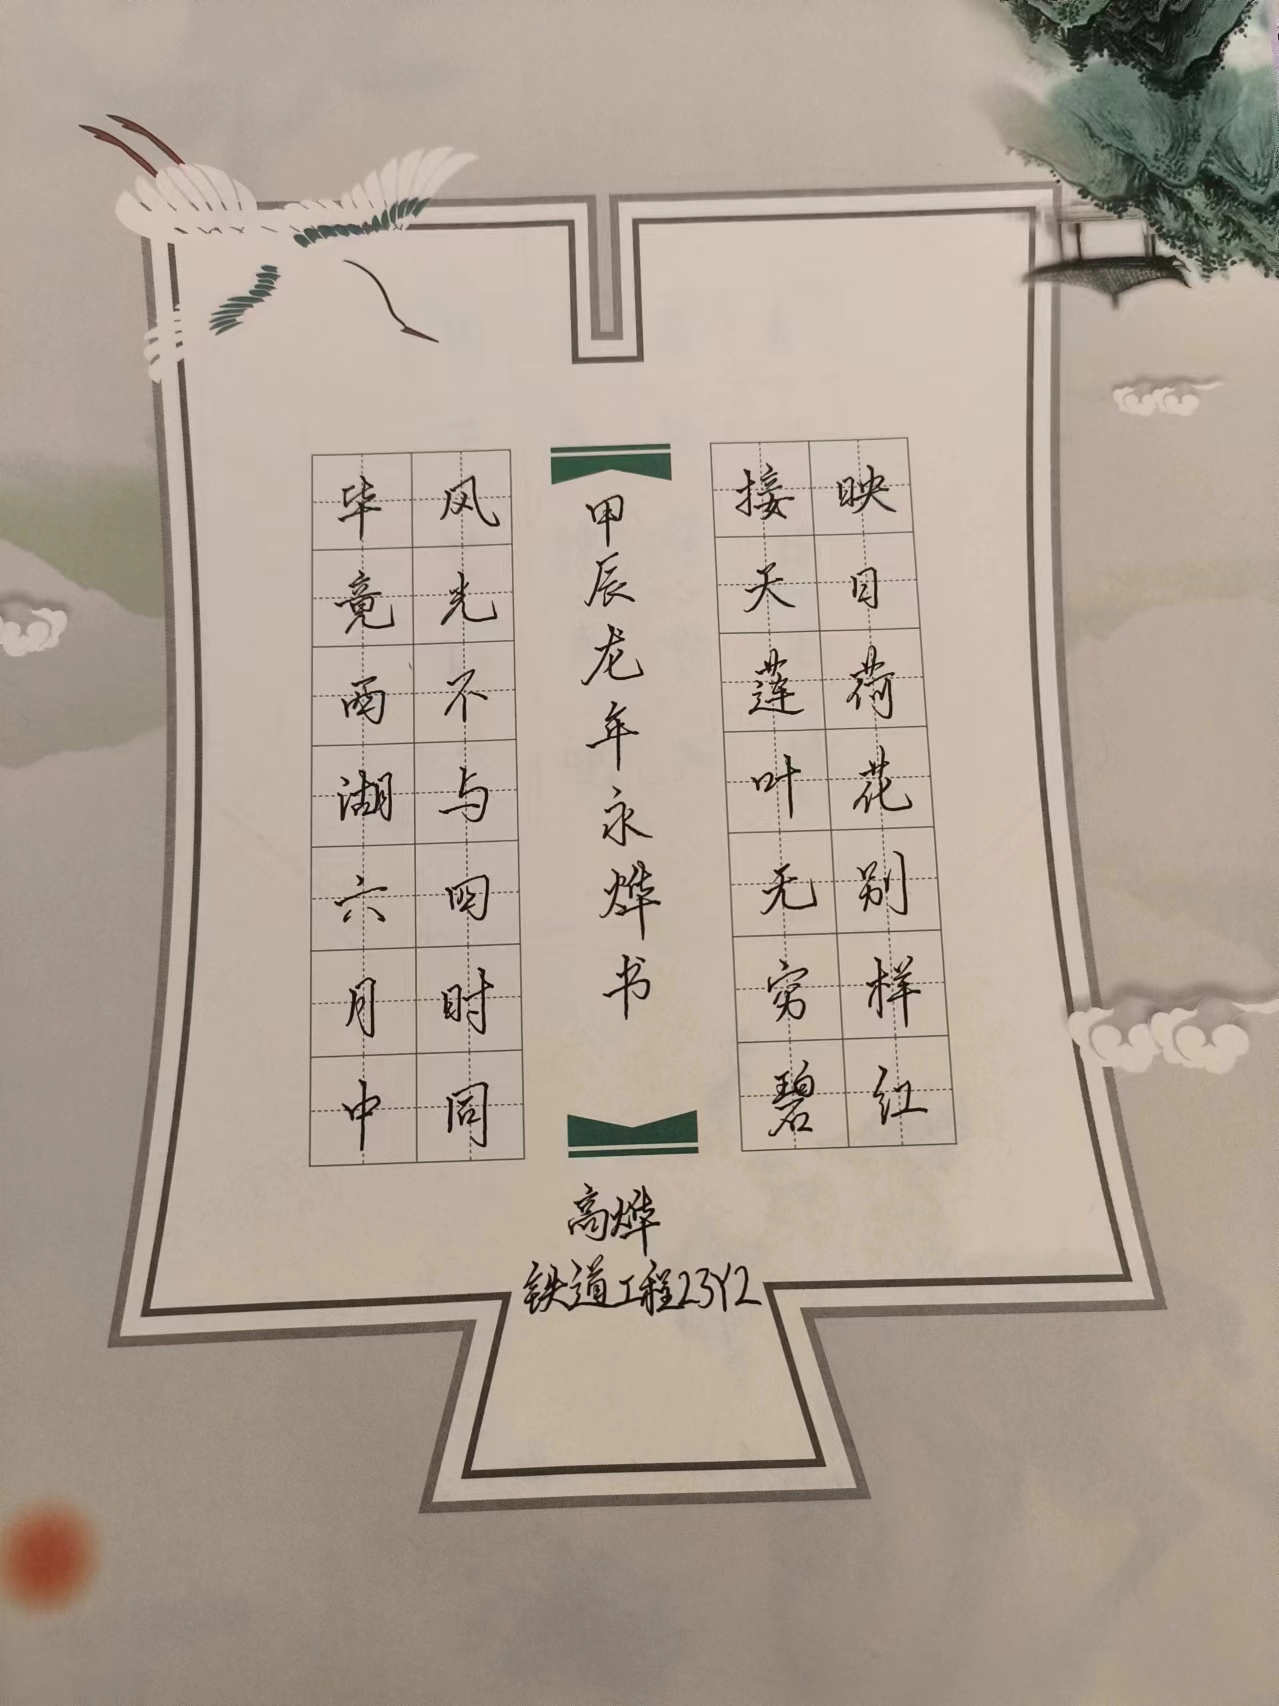 毕竟西湖六月中
风光不与四时同
甲辰龙年永烨书
接天莲叶无穷碧
映日荷花别样红
高烨
铁道工程23Y2